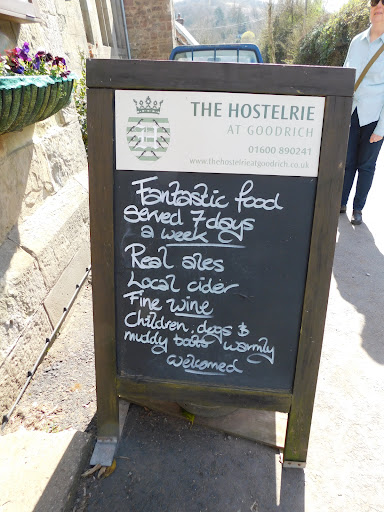 THE HOSTELRIE
AT GOODRICH
01600 890241
www.thehostelrieatgoodrich.co.uk
Fantastic food
served 7 days
a week
Real ales
Local cider
Fine wine
Children, dogs &
muddy boots warmly
welcomed